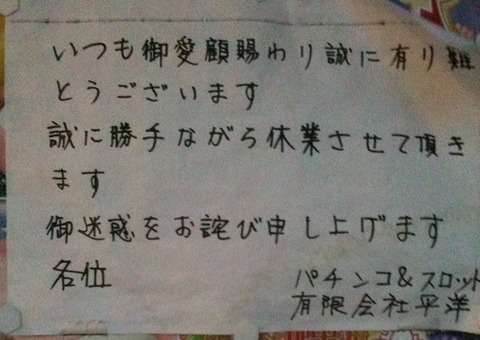 いつも御愛顧賜わり誠に有り難
とうございます
誠に勝手ながら休業させて頂き
ます
御迷惑をお詫び申し上げます
各位
パチンコ&スロット
有限会社平洋